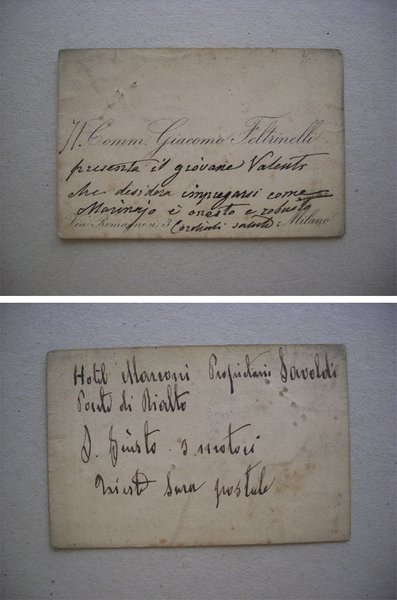 Il Comm. Giacomo Feltrinelli
presenta il giovane Valenti
che desidera impiegarsi come
Marinajo è onesto e robusto
Via Romagnosi 3 Cordiali saluti Milano
Hotel Marconi Proprietario Savoldi
Ponte di Rialto
S. Giusto 3 motori
sera postale